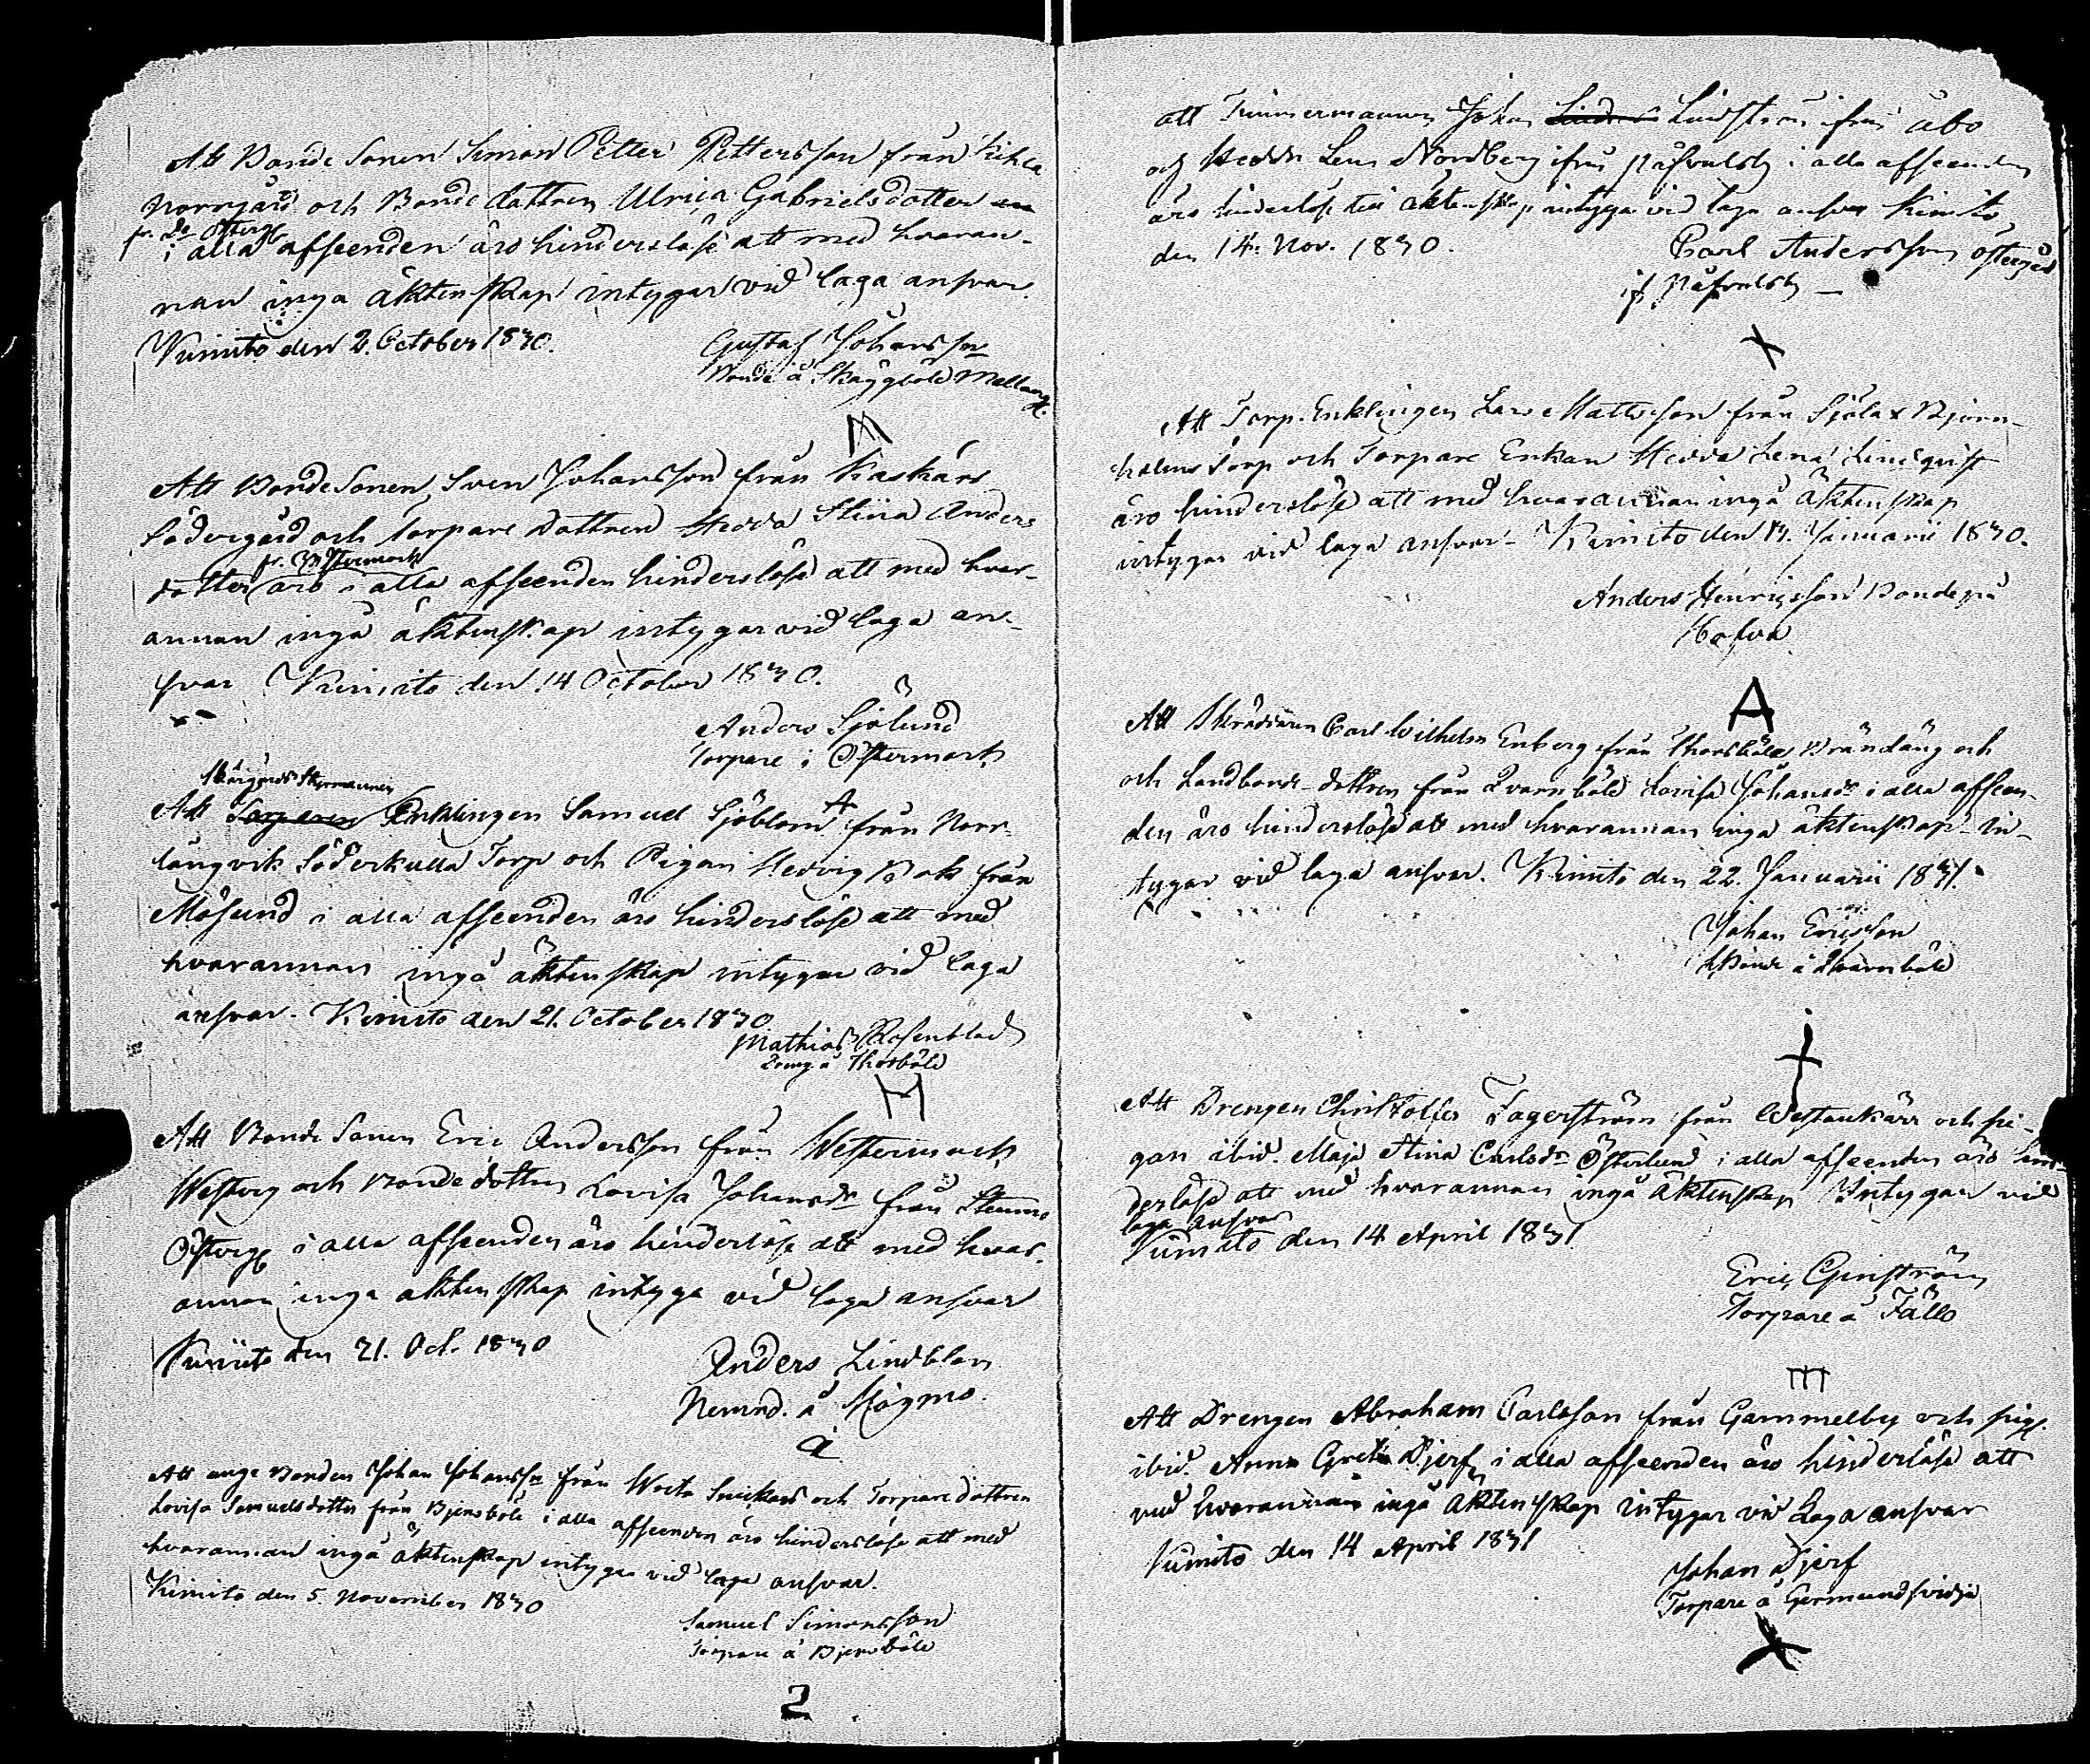 Att Bonde Sonen Simon Petter Pettersson från Kihla
Norrgård och Bonde dottren Ulrica Gabrielsdotter
fr. Do Österg.
i alla afseenden äro hinderslöse att med hvaran-
nan inga äktenskap intygar vid laga ansvar.
Kimito den 2. October 1840.
Gustaf Johansson
Bonde å Skäggböle Mellang.
Att Bonde Sonen, Sven Johansson från Kaskärs
Södergård och torpare Dottren Hedda Stina Anders
fr. Östermark
dotter äro i alla afseenden hinderslöse att med hvar-
annan ingå äktenskap intygar vid laga an-
svar Kimito den 14 October 1840.
Anders Sjölund
Torpare i Östermark
Skärgårds Styrmannen
Att Torparen Enklingen Samuel Sjöblom från Norr-
långvik Söderkulla Torp och Pigan Hedvig Bok från
Mösund i alla afseenden äro hinderslöse att med
hvarannan ingå äktenskap intygar vid laga
ansvar. Kimito den 21. October 1840
Mathias Rosenblad
å Thorböle
Att Bonde Sonen Eric Andersson från Westermark
Westerg och Bondedottren Lovisa Johansdr från
Österg i alla afseenden äro hinderlöse att med hvar-
annan inga aktenskap intyga vid laga ansvar
Kimito den 21. Oct. 1840
Anders Lindblom
Nemnd. å Mögmo.
Att unge Bonden Johan Johansson från Westa och Torpare dottren
Lovisa Samuelsdotter från Bjensböle i alla afseenden äro hinderslöse att med
hvarannan ingå äktenskap intygar vid laga ansvar.
Kimito den 5. November 1840
Samuel Simonsson
Torpare å Bjensböle
2
att Timmermannen Johan Lindström ifrån Åbo
och Hedda Lena Nordberg ifrån Påfvalsby i alla afseenden
äro hinderlöse till äktenskap intygar vid laga ansvar Kimito
den 14. Nov. 1840.
Carl Andersson Östergård
if. Påfvalsby
Att Torp. Enklingen Lars Mattsson från Sjölax Björn-
holms Torp och Torpare Enkan Hedda Lena Lindqvist
äro hinderslöse att med hvarannan ingå Äktenskap
intygar vid laga ansvar - Kimito den Januarii 1840.
Anders Henricsson Bonde på
A
Att Skräddaren Carl Wilhelm Enberg från Thorsböle Brändäng och
och Landbonde-dottren från Qvarnböle Lovisa Johansdr i alla afseen-
den äro hinderslöse att med hvarannan inga äktenskap - in-
tygar vid laga ansvar. Kimito den 22. Januarii 1841.
Johan Ericsson
LBonde å Qvarnböle
Att Drengen Christoffer Fagerström från Westankärr och pi-
gan ibid. Maja Stina Carlsdr Österlund i alla afseenden äro hin-
derlöse att med hvarannan ingå Äktenskap Intygar vid
laga ansvar
Kimito den 14 April 1841
Eric Genström
Torpare å Fällo
Att Drengen Abraham Carlsson från Gammelby och pig.
ibid. Anna Greta Djerf i alla afseenden äro hinderlöse att
med hvarannan ingå Äktenskap intygar vid Laga ansvar
Kimito den 14 April 1841
Johan Djerf
Torpare å Germundsvidja